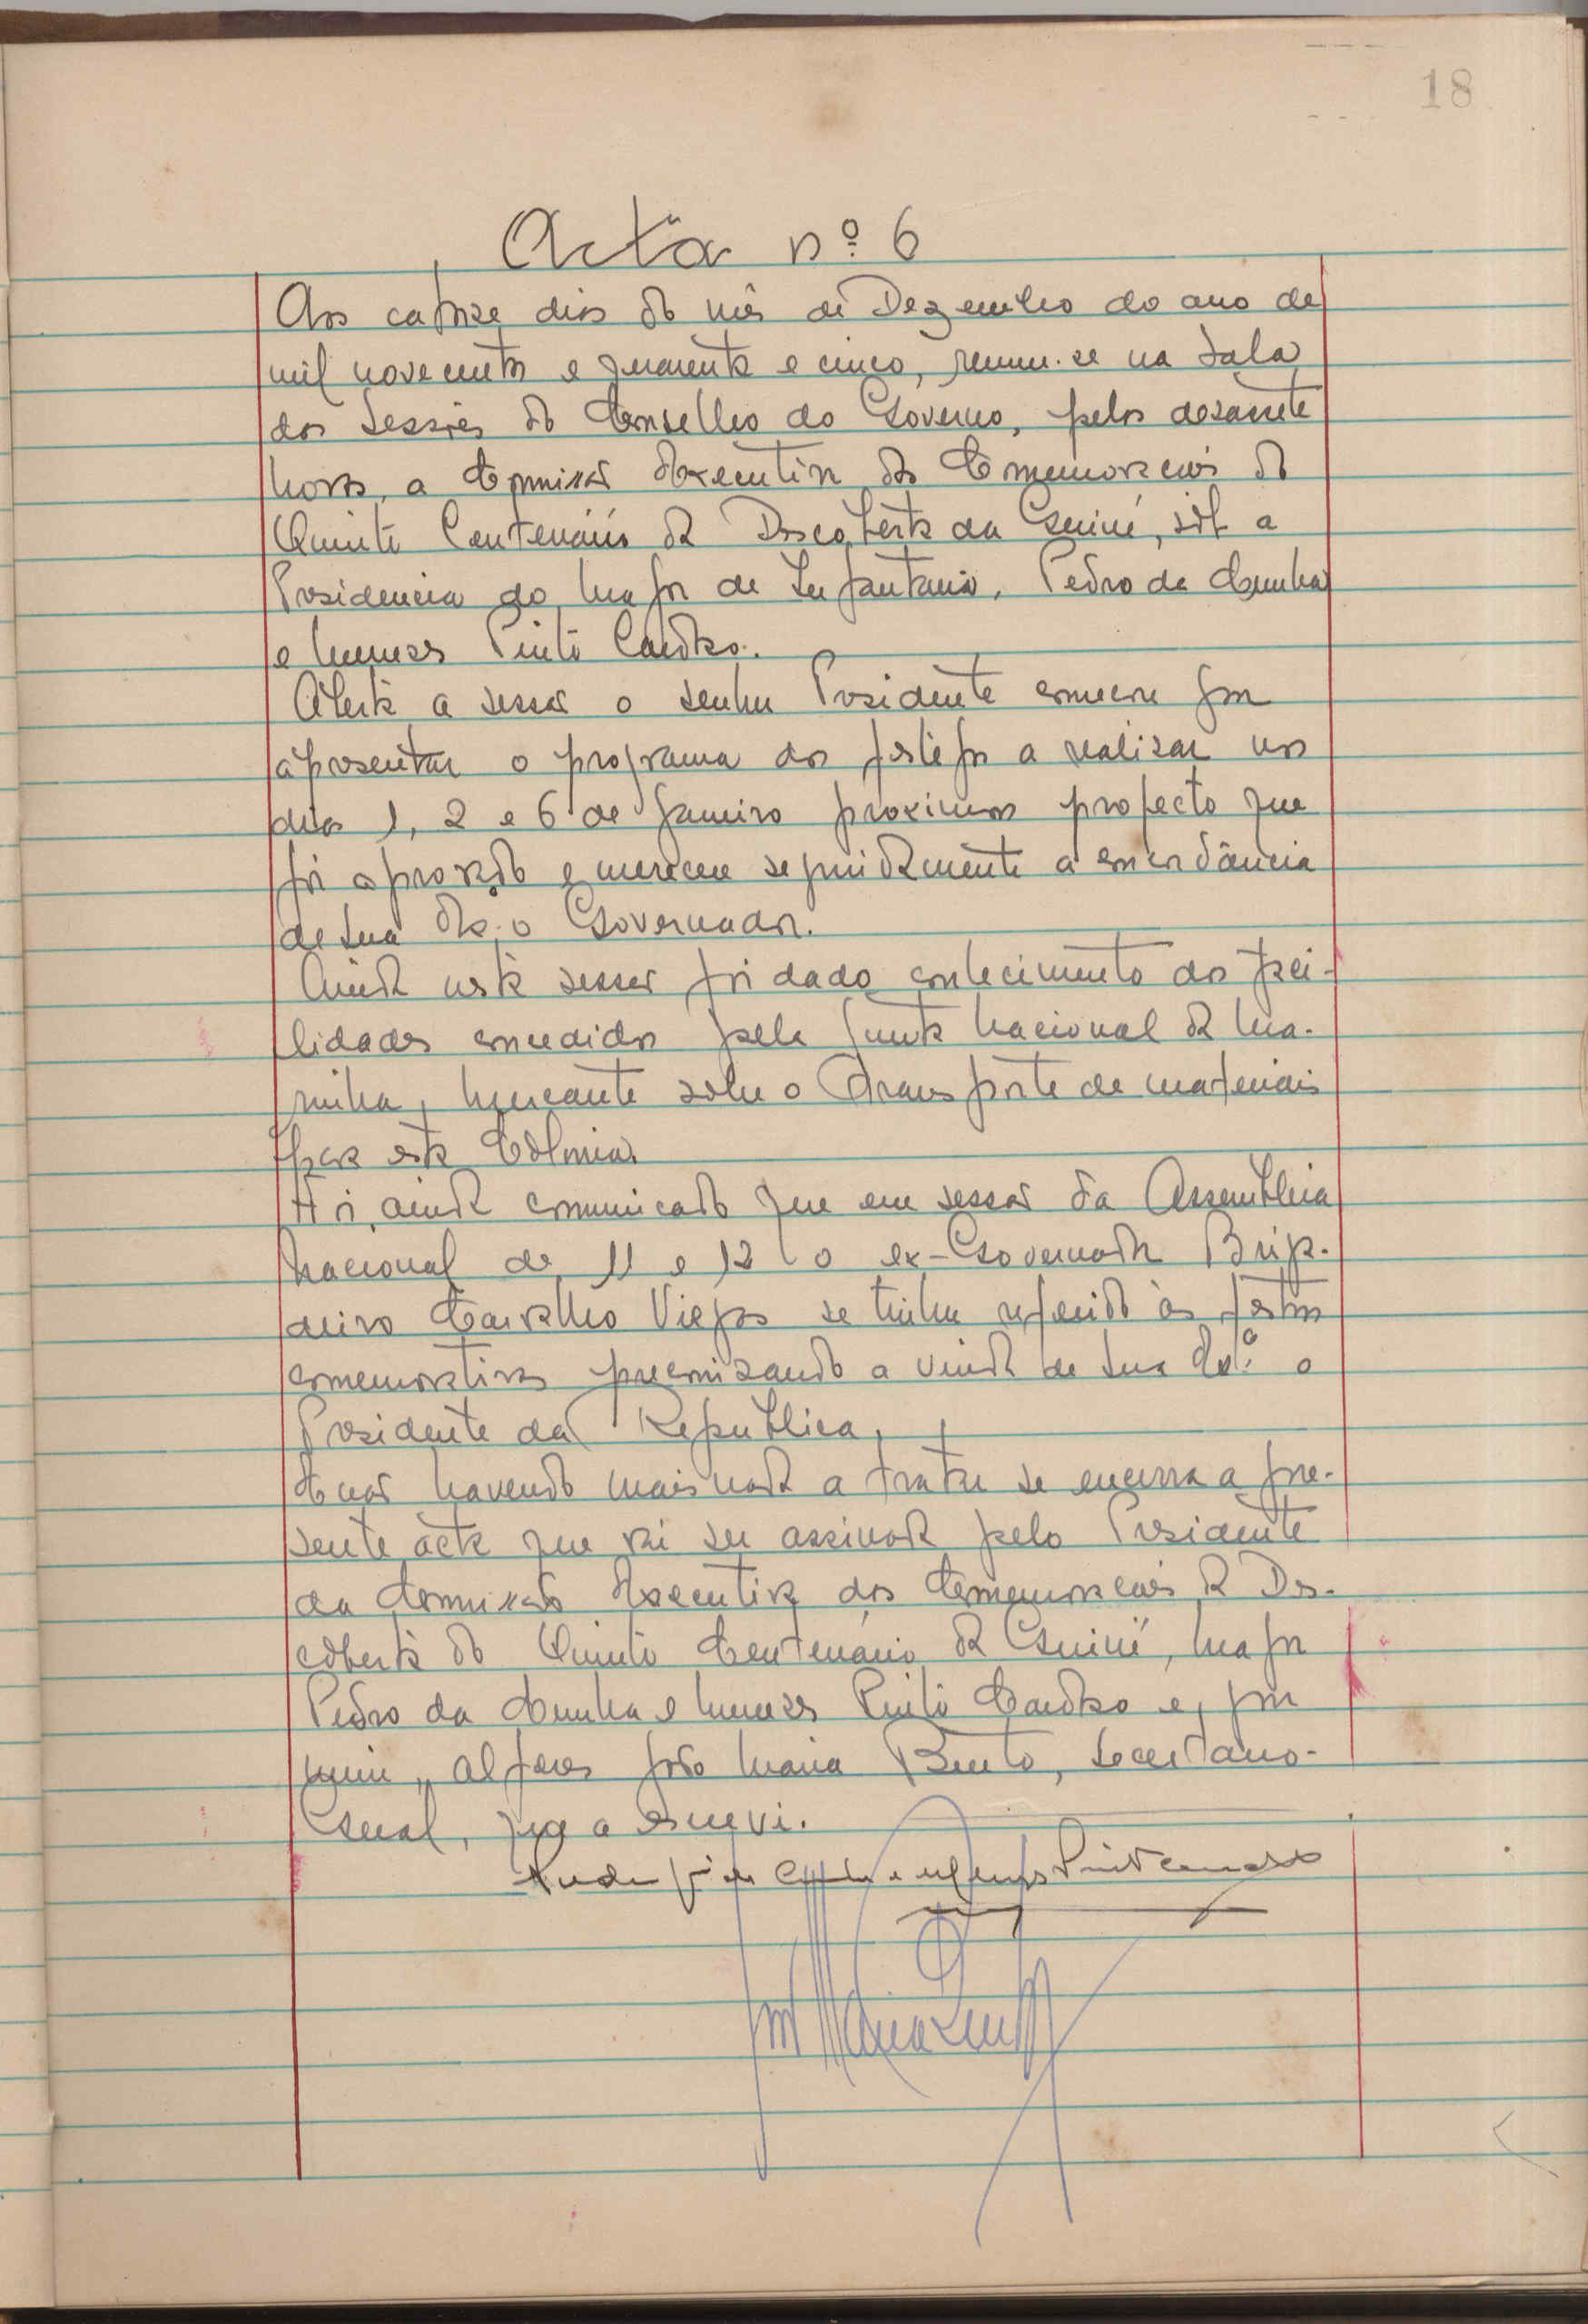 18
Acta nº 6
Aos catorze dias do mês de Dezembro do ano de
mil novecentos e quarenta e cinco, reuniu-se na Sala
das Sessões do Conselho do Governo, pelas dezassete
horas, a Comissão Executiva das Comemorações do
Quinto Centenário da Descoberta da Guiné, sob a
Presidencia do Major de Infantaria, Pedro da Cunha
e Menezes Pinto Cardoso.
Aberta a sessão o senhor Presidente começou por
apresentar o programa dos festejos a realizar nos
dias 1, 2 e 6 de Janeiro proximos projecto que
foi aprovado e mereceu seguidamente a concordância
de Sua Exª. o Governador.
Ainda nesta sessão foi dado conhecimento das faci-
lidades concedidas pela Junta Nacional da Ma-
rinha Mercante sobre o Transporte de materiais
para esta Colónia.
Foi ainda comunicado que em sessão da Assembleia
Nacional de 11 e 12 o ex-Governador Briga-
deiro Carvalho Viegas se tinha referido às festas
comemorativas preconizando a vinda de Sua Exª. o
Presidente da Republica.
E não havendo mais nada a tratar se encerra a pre-
sente acta que vai ser assinada pelo Presidente
da Comissão Executiva das Comemorações da Des-
coberta do Quinto Centenário da Guiné, Major
Pedro da Cunha e Menezes Pinto Cardoso e, por
mim, alferes João Maria Bento, Secretario-
Geral, que a escrevi.
Pinto Cardoso